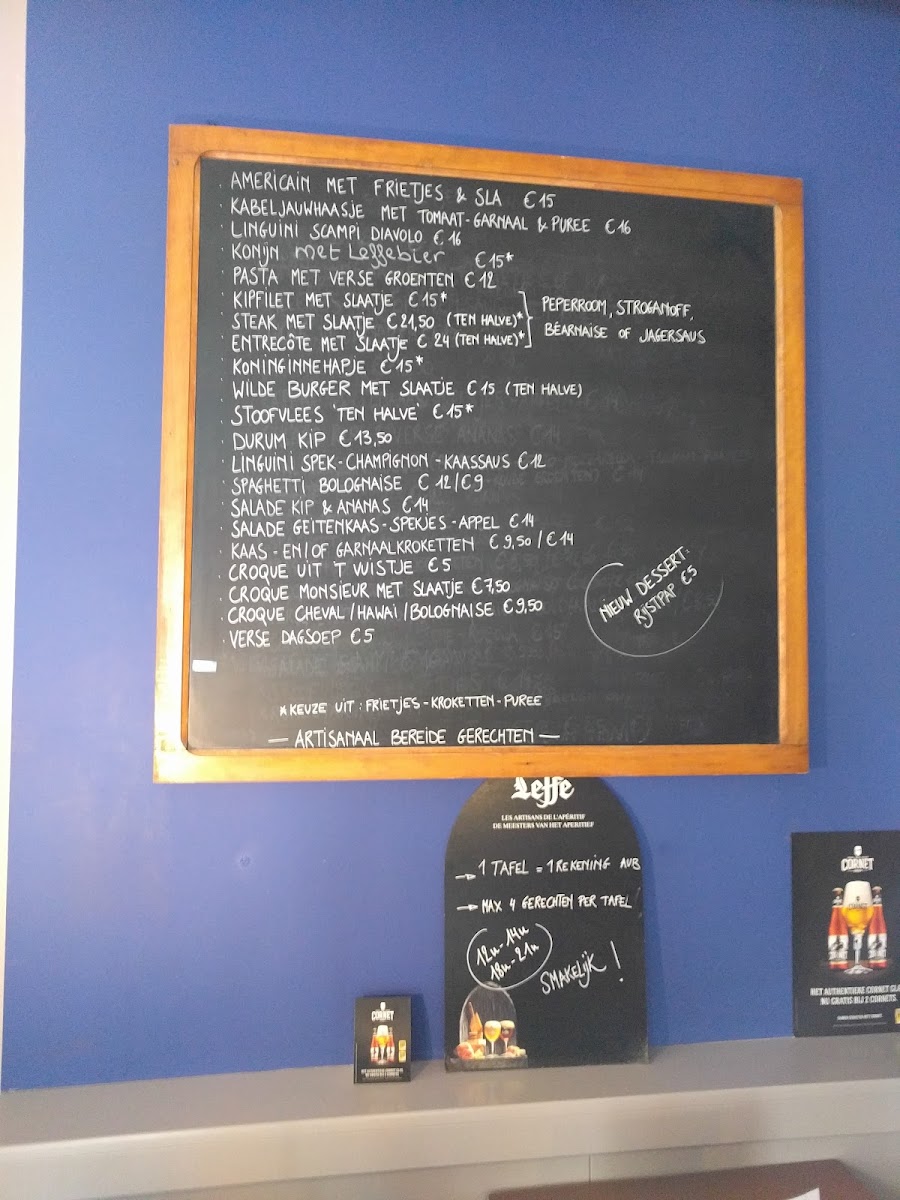 · AMERICAIN MET FRIETJES & SLA €15
· KABELJAUWHAASJE MET TOMAAT-GARNAAL & PUREE €16
· LINGUINI SCAMPI DIAVOLO €16
· KONIJN met Leffebier €15*
· PASTA MET VERSE GROENTEN €12
· KIPFILET MET SLAATJE €15*
· STEAK MET SLAATJE €21,50 (TEN HALVE)*
· ENTRECÔTE MET SLAATJE € 24 (TEN HALVE)*
PEPERROOM, STROGANOFF,
BÉARNAISE OF JAGERSAUS
· KONINGINNEHAPJE €15*
· WILDE BURGER MET SLAATJE €15 (TEN HALVE)
· STOOFVLEES 'TEN HALVE' €15*
· DURUM KIP €13,50
· LINGUINI SPEK-CHAMPIGNON-KAASSAUS €12
· SPAGHETTI BOLOGNAISE € 12/€9
· SALADE KIP & ANANAS €14
· SALADE GEITENKAAS-SPEKJES-APPEL €14
· KAAS-EN/OF GARNAALKROKETTEN €9,50/€14
· CROQUE UIT T VUISTJE €5
· CROQUE MONSIEUR MET SLAATJE €7,50
· CROQUE CHEVAL/HAWAI/BOLOGNAISE €9,50
· VERSE DAGSOEP €5
NIEUW DESSERT:
RIJSTPAP €5
*KEUZE UIT: FRIETJES-KROKETTEN-PUREE
— ARTISANAAL BEREIDE GERECHTEN —
Leffe
LES ARTISANS DE L'APÉRITIF
DE MEESTERS VAN HET APERITIEF
→ 1 TAFEL = 1 REKENING AUB
→ MAX 4 GERECHTEN PER TAFEL
12u-14u
18u-21u
SMAKELIJK!
CORNET
HET AUTHENTIEKE CORNET
NU GRATIS BIJ 2 CORNETS.
CORNET